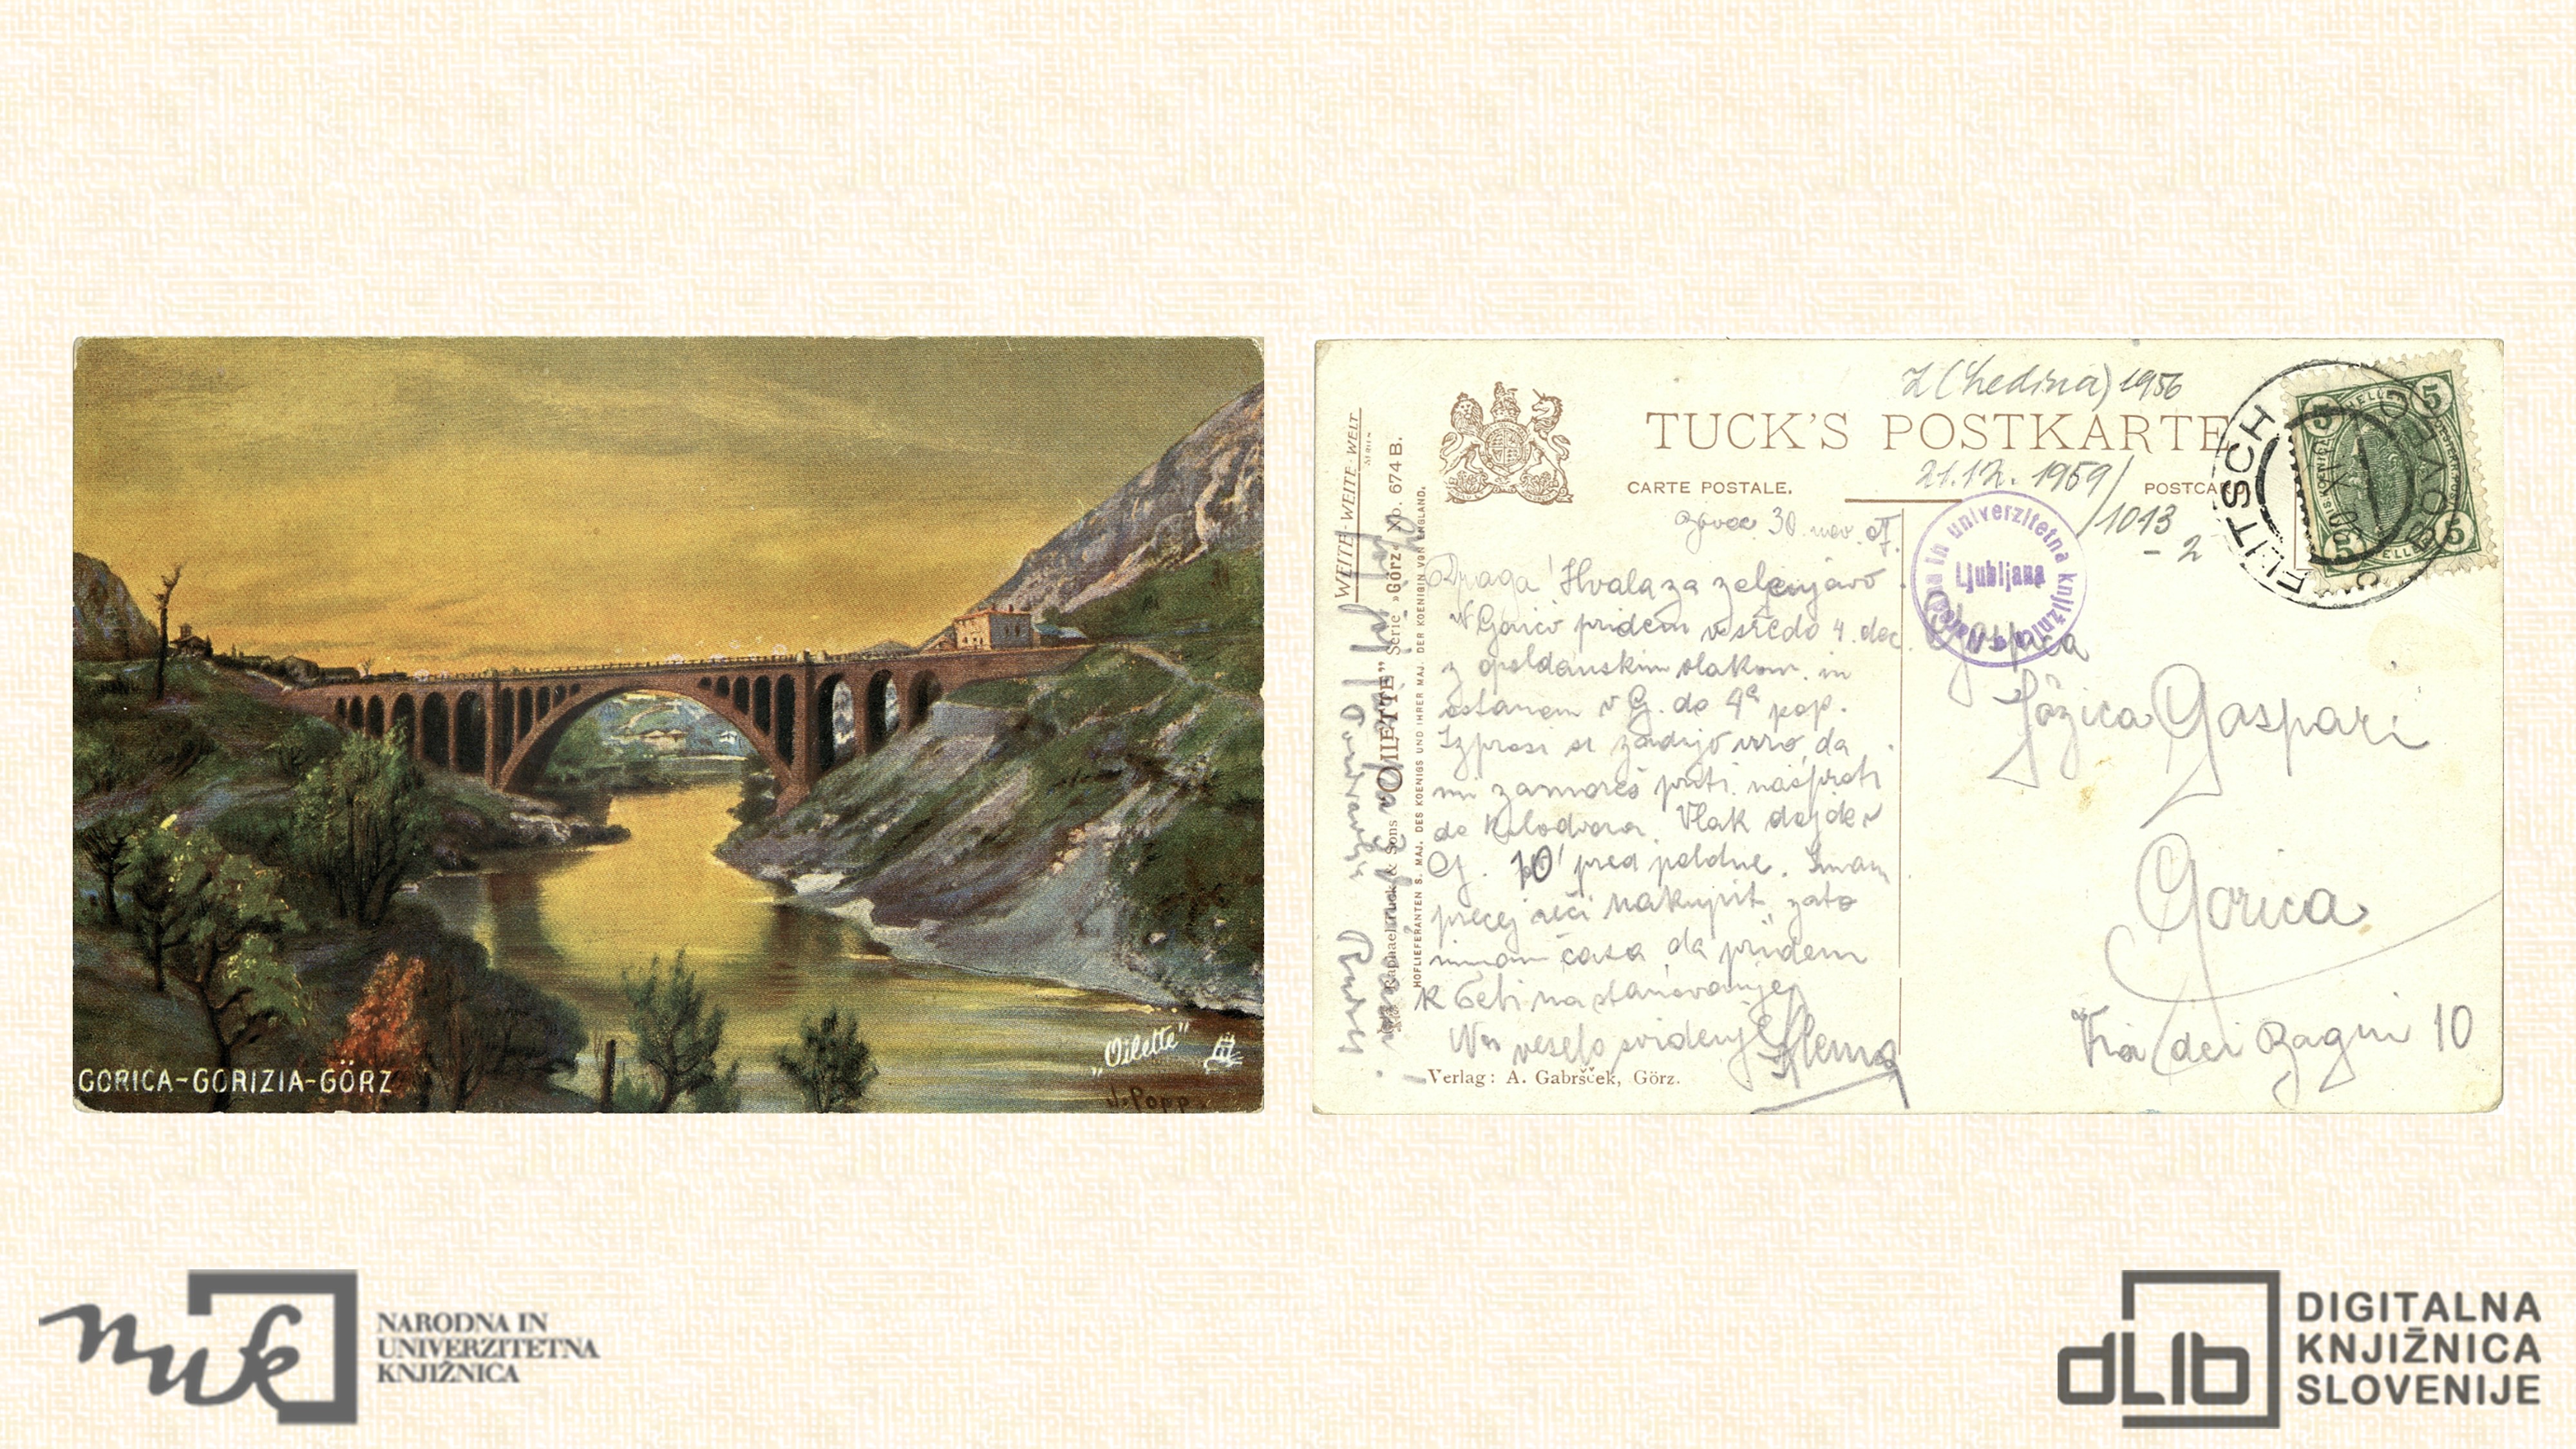 GORICA-GORIZIA-GÖRZ
„Oilette"
J. Popp.
Z (Zhedina) 1956
TUCK'S POSTKARTE
CARTE POSTALE.
POSTCA
21.12. 1959/
/1013
- 2
FLITSCH
5
5
5
5
univerzitetna knjižnica
Ljubljana
WEITE-WEITE-WELT
Serie »Görz« No. 674 B.
Raphael Tuck & Sons "OILETTE"
HOFLIEFERANTEN S. MAJ. DES KOENIGS UND IHRER MAJ. DER KOENIGIN VON ENGLAND.
30. nov. 07.
Draga! Hvala za zelenjavo
V Gorico pridem v sredo 4. dec.
z opoldanskim vlakom in
ostanem v G. do 4ª pop.
Izprosi si zadnjo uro, da
mi zamoreš priti nasproti
do kolodvora. Vlak dojde v
G. 10' pred poldne. Imam
precej reči nakupit, zato
nimam časa da pridem
k Tebi na stanovanje.
Na veselo svidenje
Verlag: A. Gabršček, Görz.
Gospica
Józica Gaspari
Gorica
Via dei Bagni 10
nuk
NARODNA IN
UNIVERZITETNA
KNJIŽNICA
dLib
DIGITALNA
KNJIŽNICA
SLOVENIJE